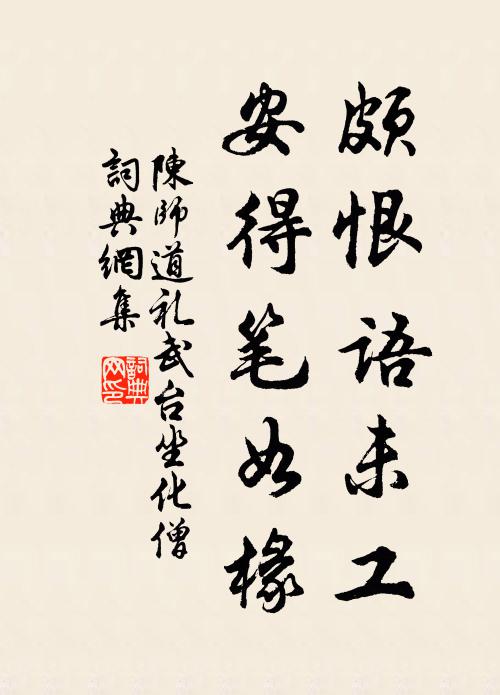 頗恨語未工
安得笔如椽
陳師道礼武台坐化僧
詞典網集
詞典
网印